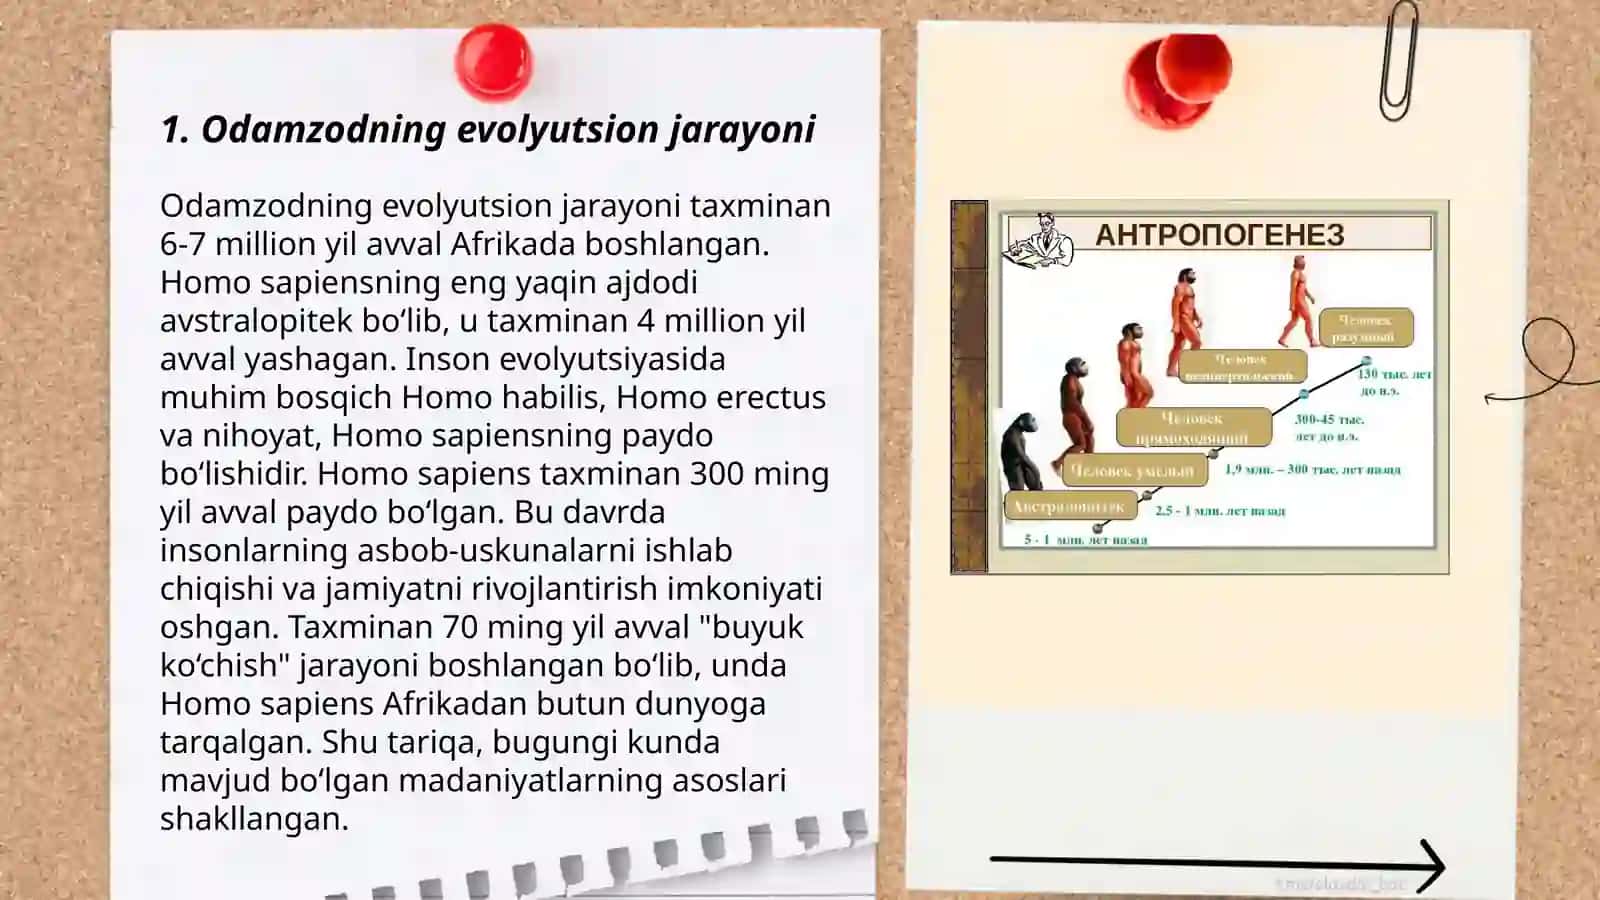 1. Odamzodning evolyutsion jarayoni
Odamzodning evolyutsion jarayoni taxminan
6-7 million yil avval Afrikada boshlangan.
Homo sapiensning eng yaqin ajdodi
avstralopitek bo‘lib, u taxminan 4 million yil
avval yashagan. Inson evolyutsiyasida
muhim bosqich Homo habilis, Homo erectus
va nihoyat, Homo sapiensning paydo
bo‘lishidir. Homo sapiens taxminan 300 ming
yil avval paydo bo‘lgan. Bu davrda
insonlarning asbob-uskunalarni ishlab
chiqishi va jamiyatni rivojlantirish imkoniyati
oshgan. Taxminan 70 ming yil avval "buyuk
ko‘chish" jarayoni boshlangan bo‘lib, unda
Homo sapiens Afrikadan butun dunyoga
tarqalgan. Shu tariqa, bugungi kunda
mavjud bo‘lgan madaniyatlarning asoslari
shakllangan.
АНТРОПОГЕНЕЗ
Человек
разумный
130 тыс. лет
до н.э.
Человек
неандертальский
300-45 тыс.
лет до н.э.
Человек
прямоходящий
1,9 млн. – 300 тыс. лет назад
Человек умелый
2,5 - 1 млн. лет назад
Австралопитек
5 - 1 млн. лет назад